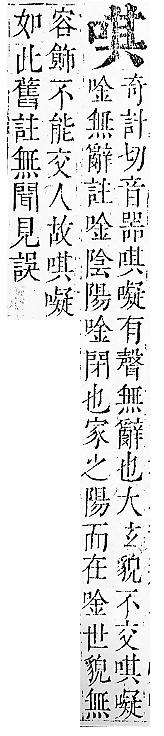 唭
奇計切音器唭嚔有聲無辭也大玄貌不交唭嚔
唫無辭註唫陰陽唫閉也家之陽而在唫世貌無
容飾不能交人故唭嚔
如此舊註無聞見誤